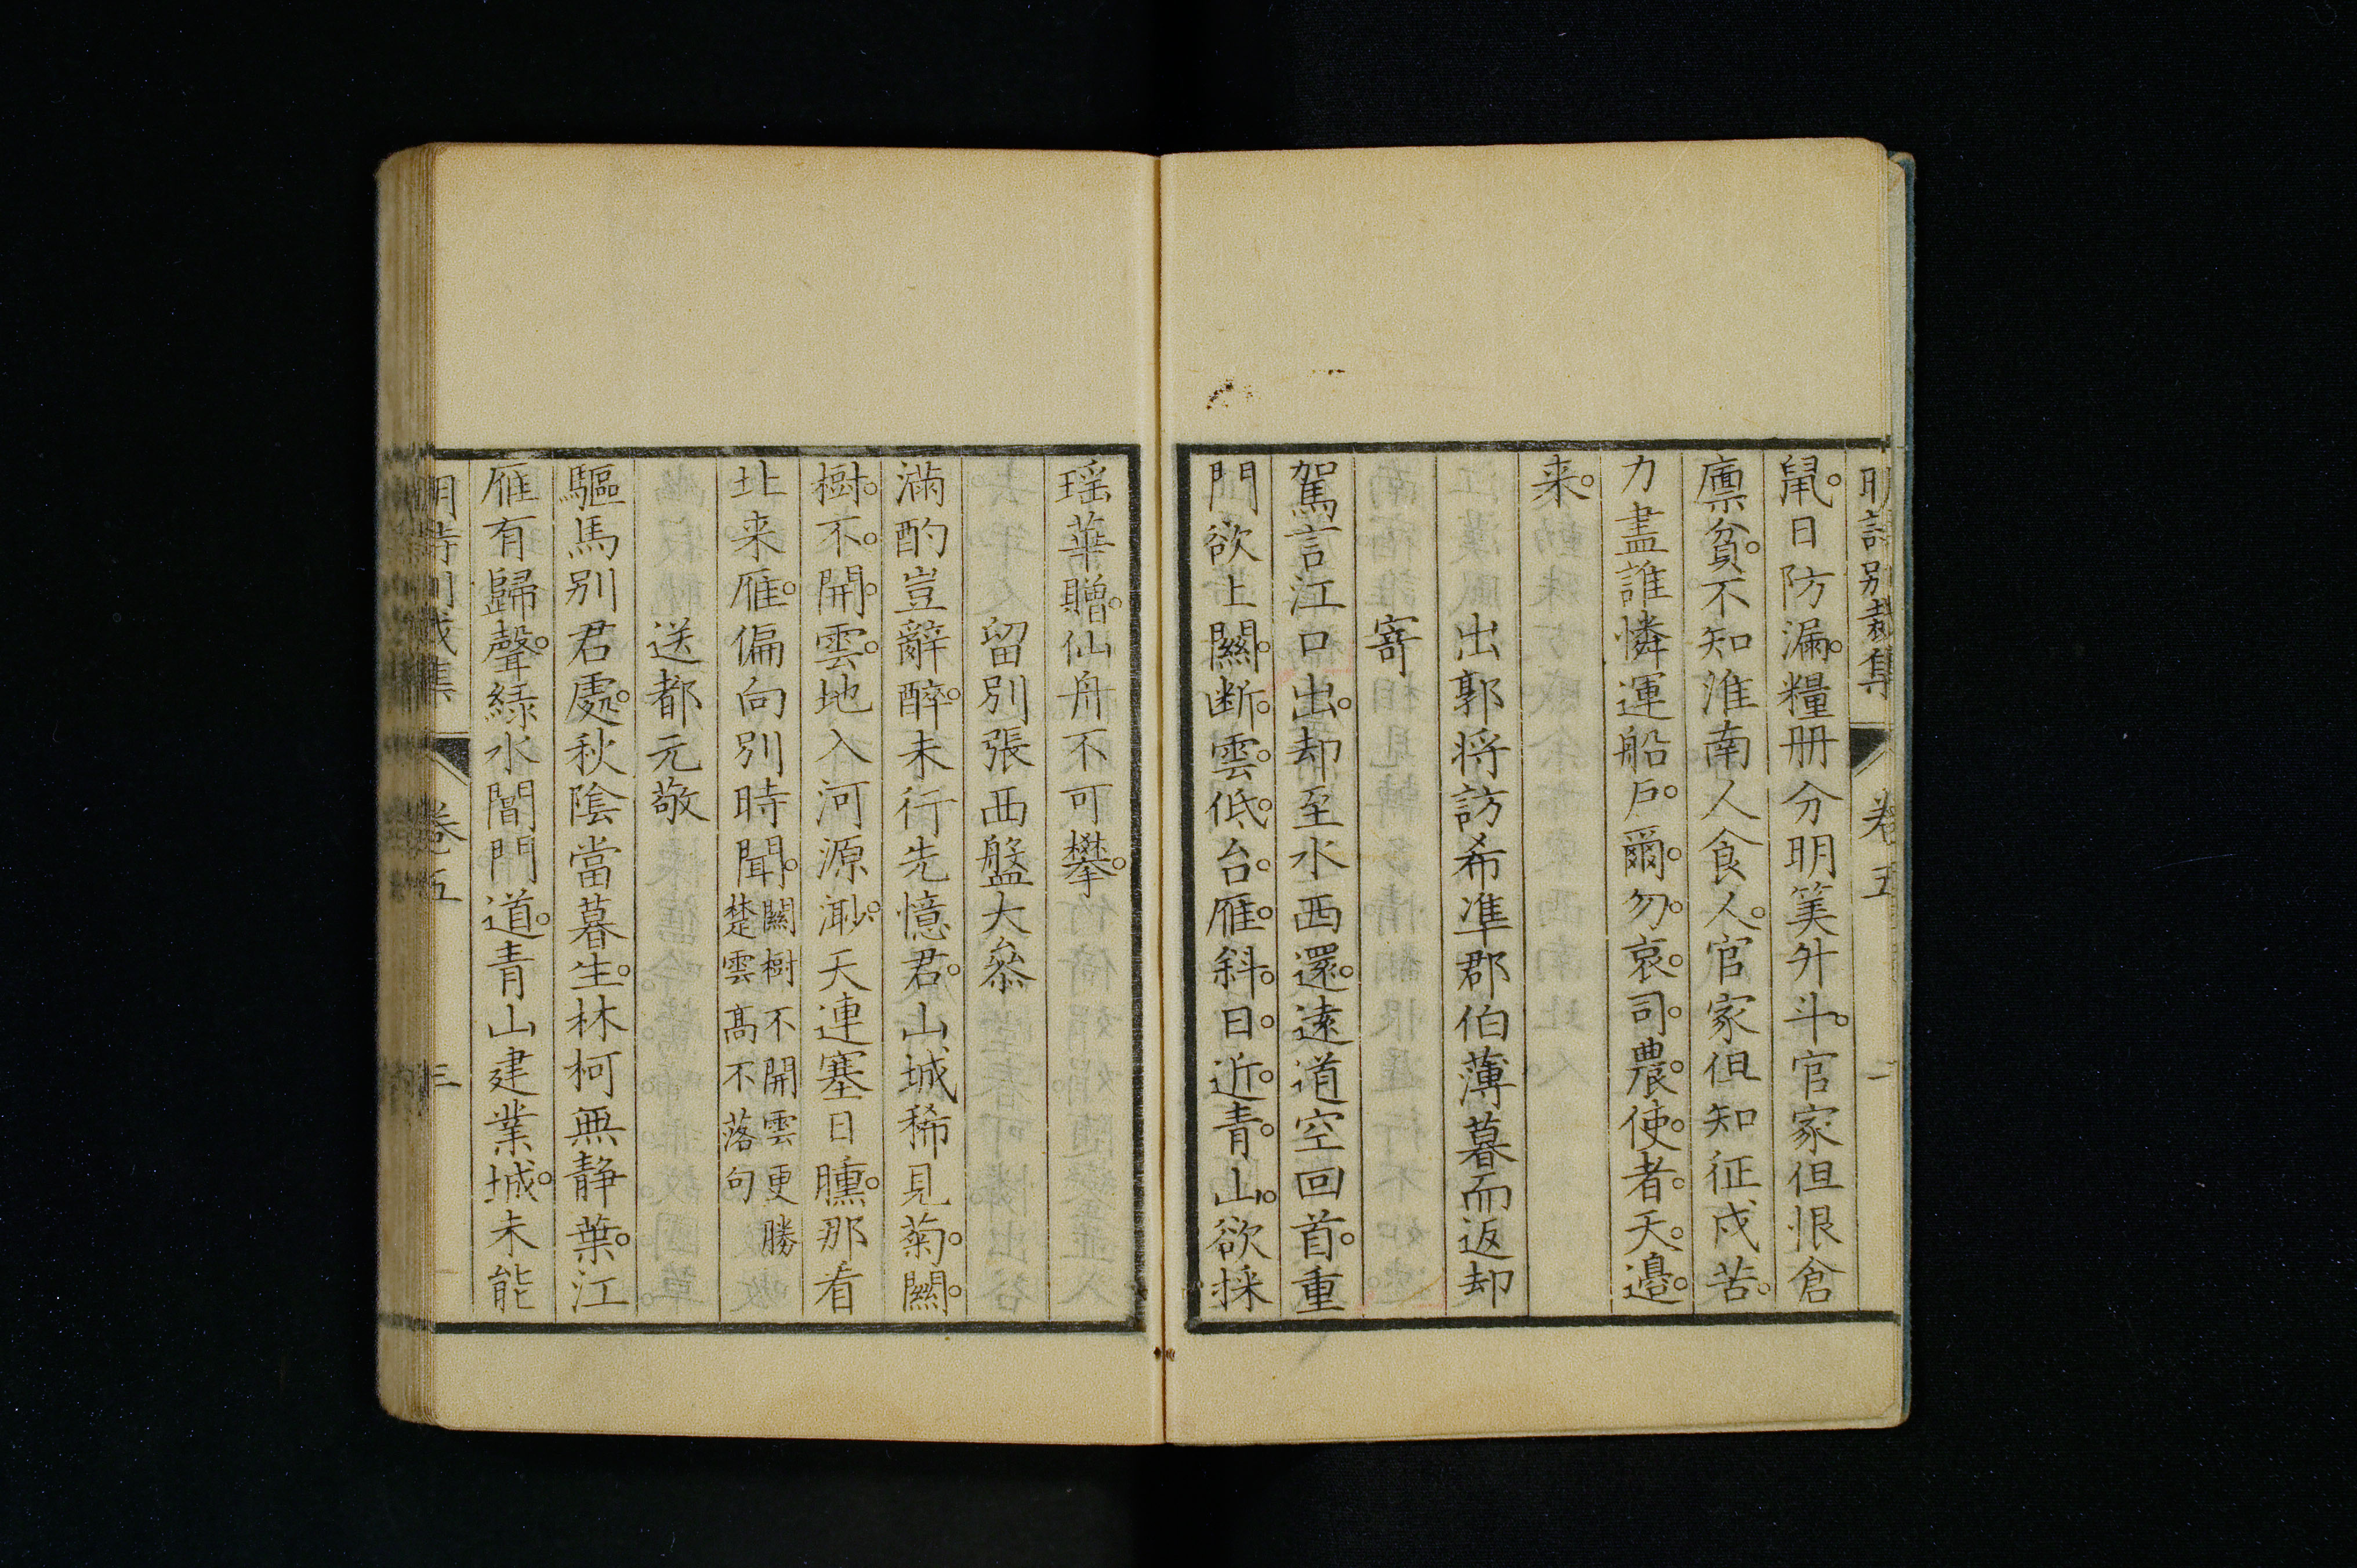 明詩別裁集 卷五
鼠。日防漏。糧册分明筭升斗。官家但恨倉
廪貧。不知淮南人食人。官家但知征戍苦。
力盡誰憐運船戶。爾。勿。哀。司。農。使。者。天。邉。
来。
出郭将訪希準郡伯薄暮而返却
寄
駕言江口出。却至水西還。逺道空回首。重
門欲上關。断。雲。低。台。雁。斜。日。近。青。山。欲採
瑶華贈。仙舟不可攀。
留別張西盤大叅
滿酌豈辭醉。未行先憶君。山城稀見菊。關。
樹。不。開。雲。地入河源渺。天連塞日曛。那看
北来雁。偏向別時聞。關樹不開雲更勝
楚雲髙不落句
送都元敬
驅馬别君處。秋陰當暮生。林柯無静葉。江
雁有歸聲。緑水閶門道。青山建業城。未能
明詩別裁集 卷五 三